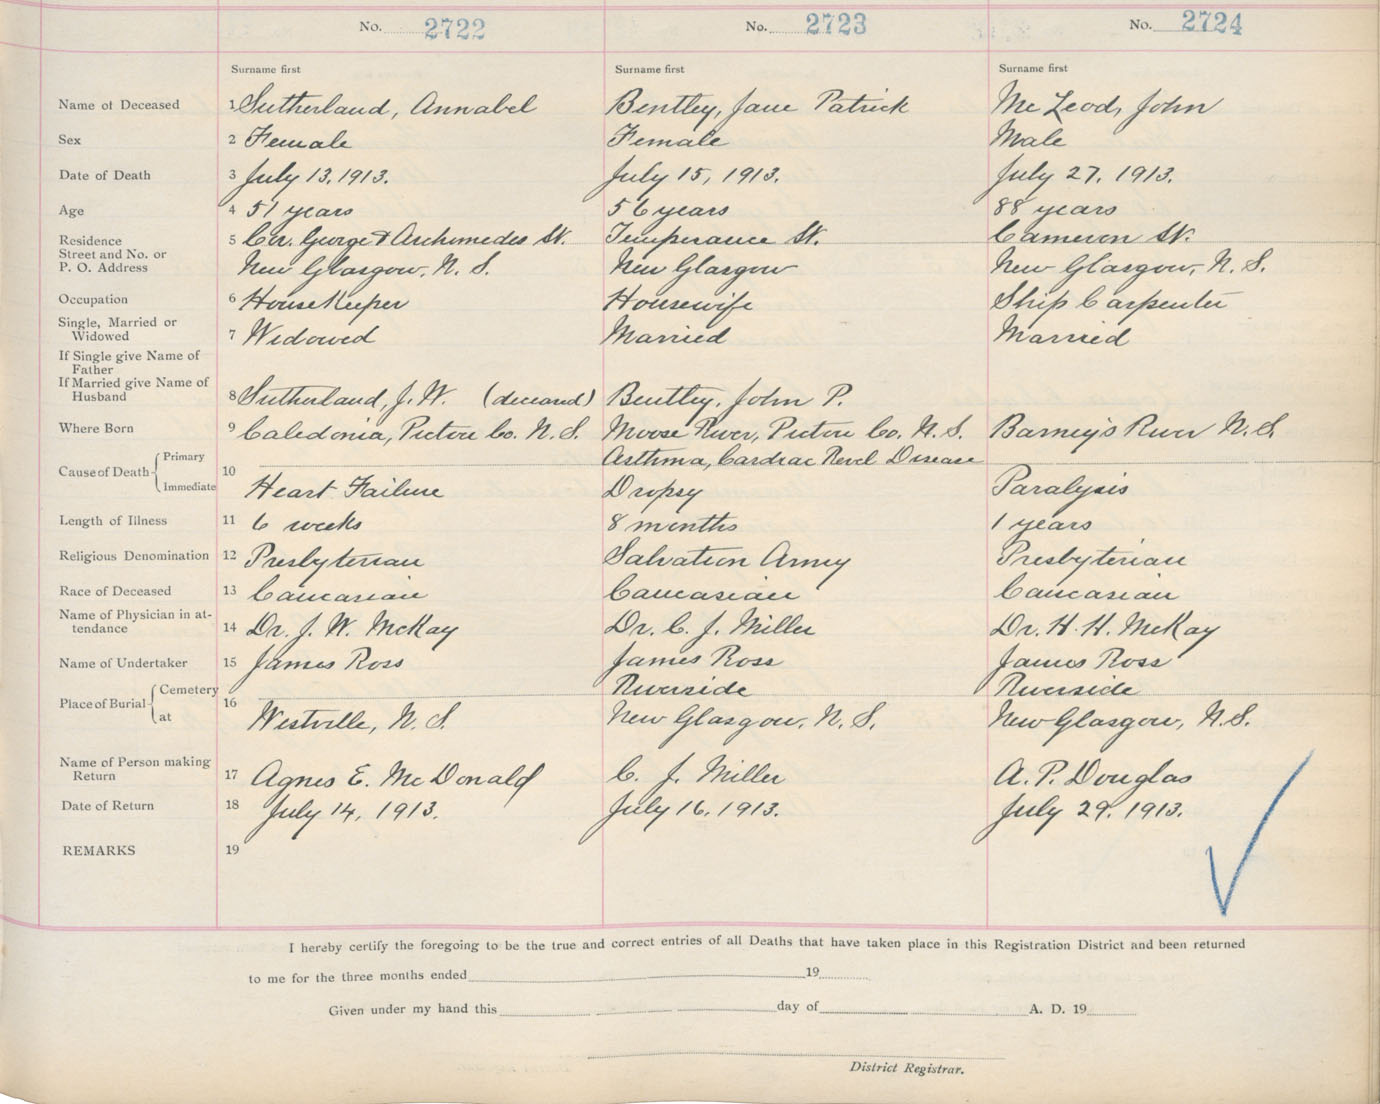 No. 2722 No. 2723 No. 2724
Surname first Surname first Surname first
Name of Deceased 1 Sutherland, Annabel Bentley, Jane Patrick McLeod, John
Sex 2 Female Female Male
Date of Death 3 July 13, 1913. July 15, 1913. July 27, 1913.
Age 4 51 years 56 years 88 years
Residence 5 Cor. George & Archemedes St. Temperance St. Cameron St.
Street and No. or
P. O. Address New Glasgow, N. S. New Glasgow New Glasgow, N. S.
Occupation 6 Housekeeper Housewife Ship Carpenter
Single, Married or
Widowed 7 Widowed Married Married
If Single give Name of
Father
If Married give Name of
Husband 8 Sutherland, J. W. (deceased) Bentley, John P.
Where Born 9 Caledonia, Pictou Co. N. S. Moose River, Pictou Co. N. S. Barney's River N. S.
Cause of Death Primary 10 Asthma, Cardiac Disease
Immediate Heart Failure Dropsy Paralysis
Length of Illness 11 6 weeks 8 months 1 years
Religious Denomination 12 Presbyterian Salvation Army Presbyterian
Race of Deceased 13 Caucasian Caucasian Caucasian
Name of Physician in at-
tendance 14 Dr. J. W. McKay Dr. C. J. Miller Dr. H. H. McKay
Name of Undertaker 15 James Ross James Ross James Ross
Place of Burial Cemetery 16 Riverside Riverside
at Westville, N. S. New Glasgow, N. S. New Glasgow, N. S.
Name of Person making
Return 17 Agnes E. McDonald C. J. Miller A. P. Douglas
Date of Return 18 July 14, 1913. July 16, 1913. July 29, 1913.
REMARKS 19
I hereby certify the foregoing to be the true and correct entries of all Deaths that have taken place in this Registration District and been returned
to me for the three months ended 19
Given under my hand this day of A. D. 19
District Registrar.